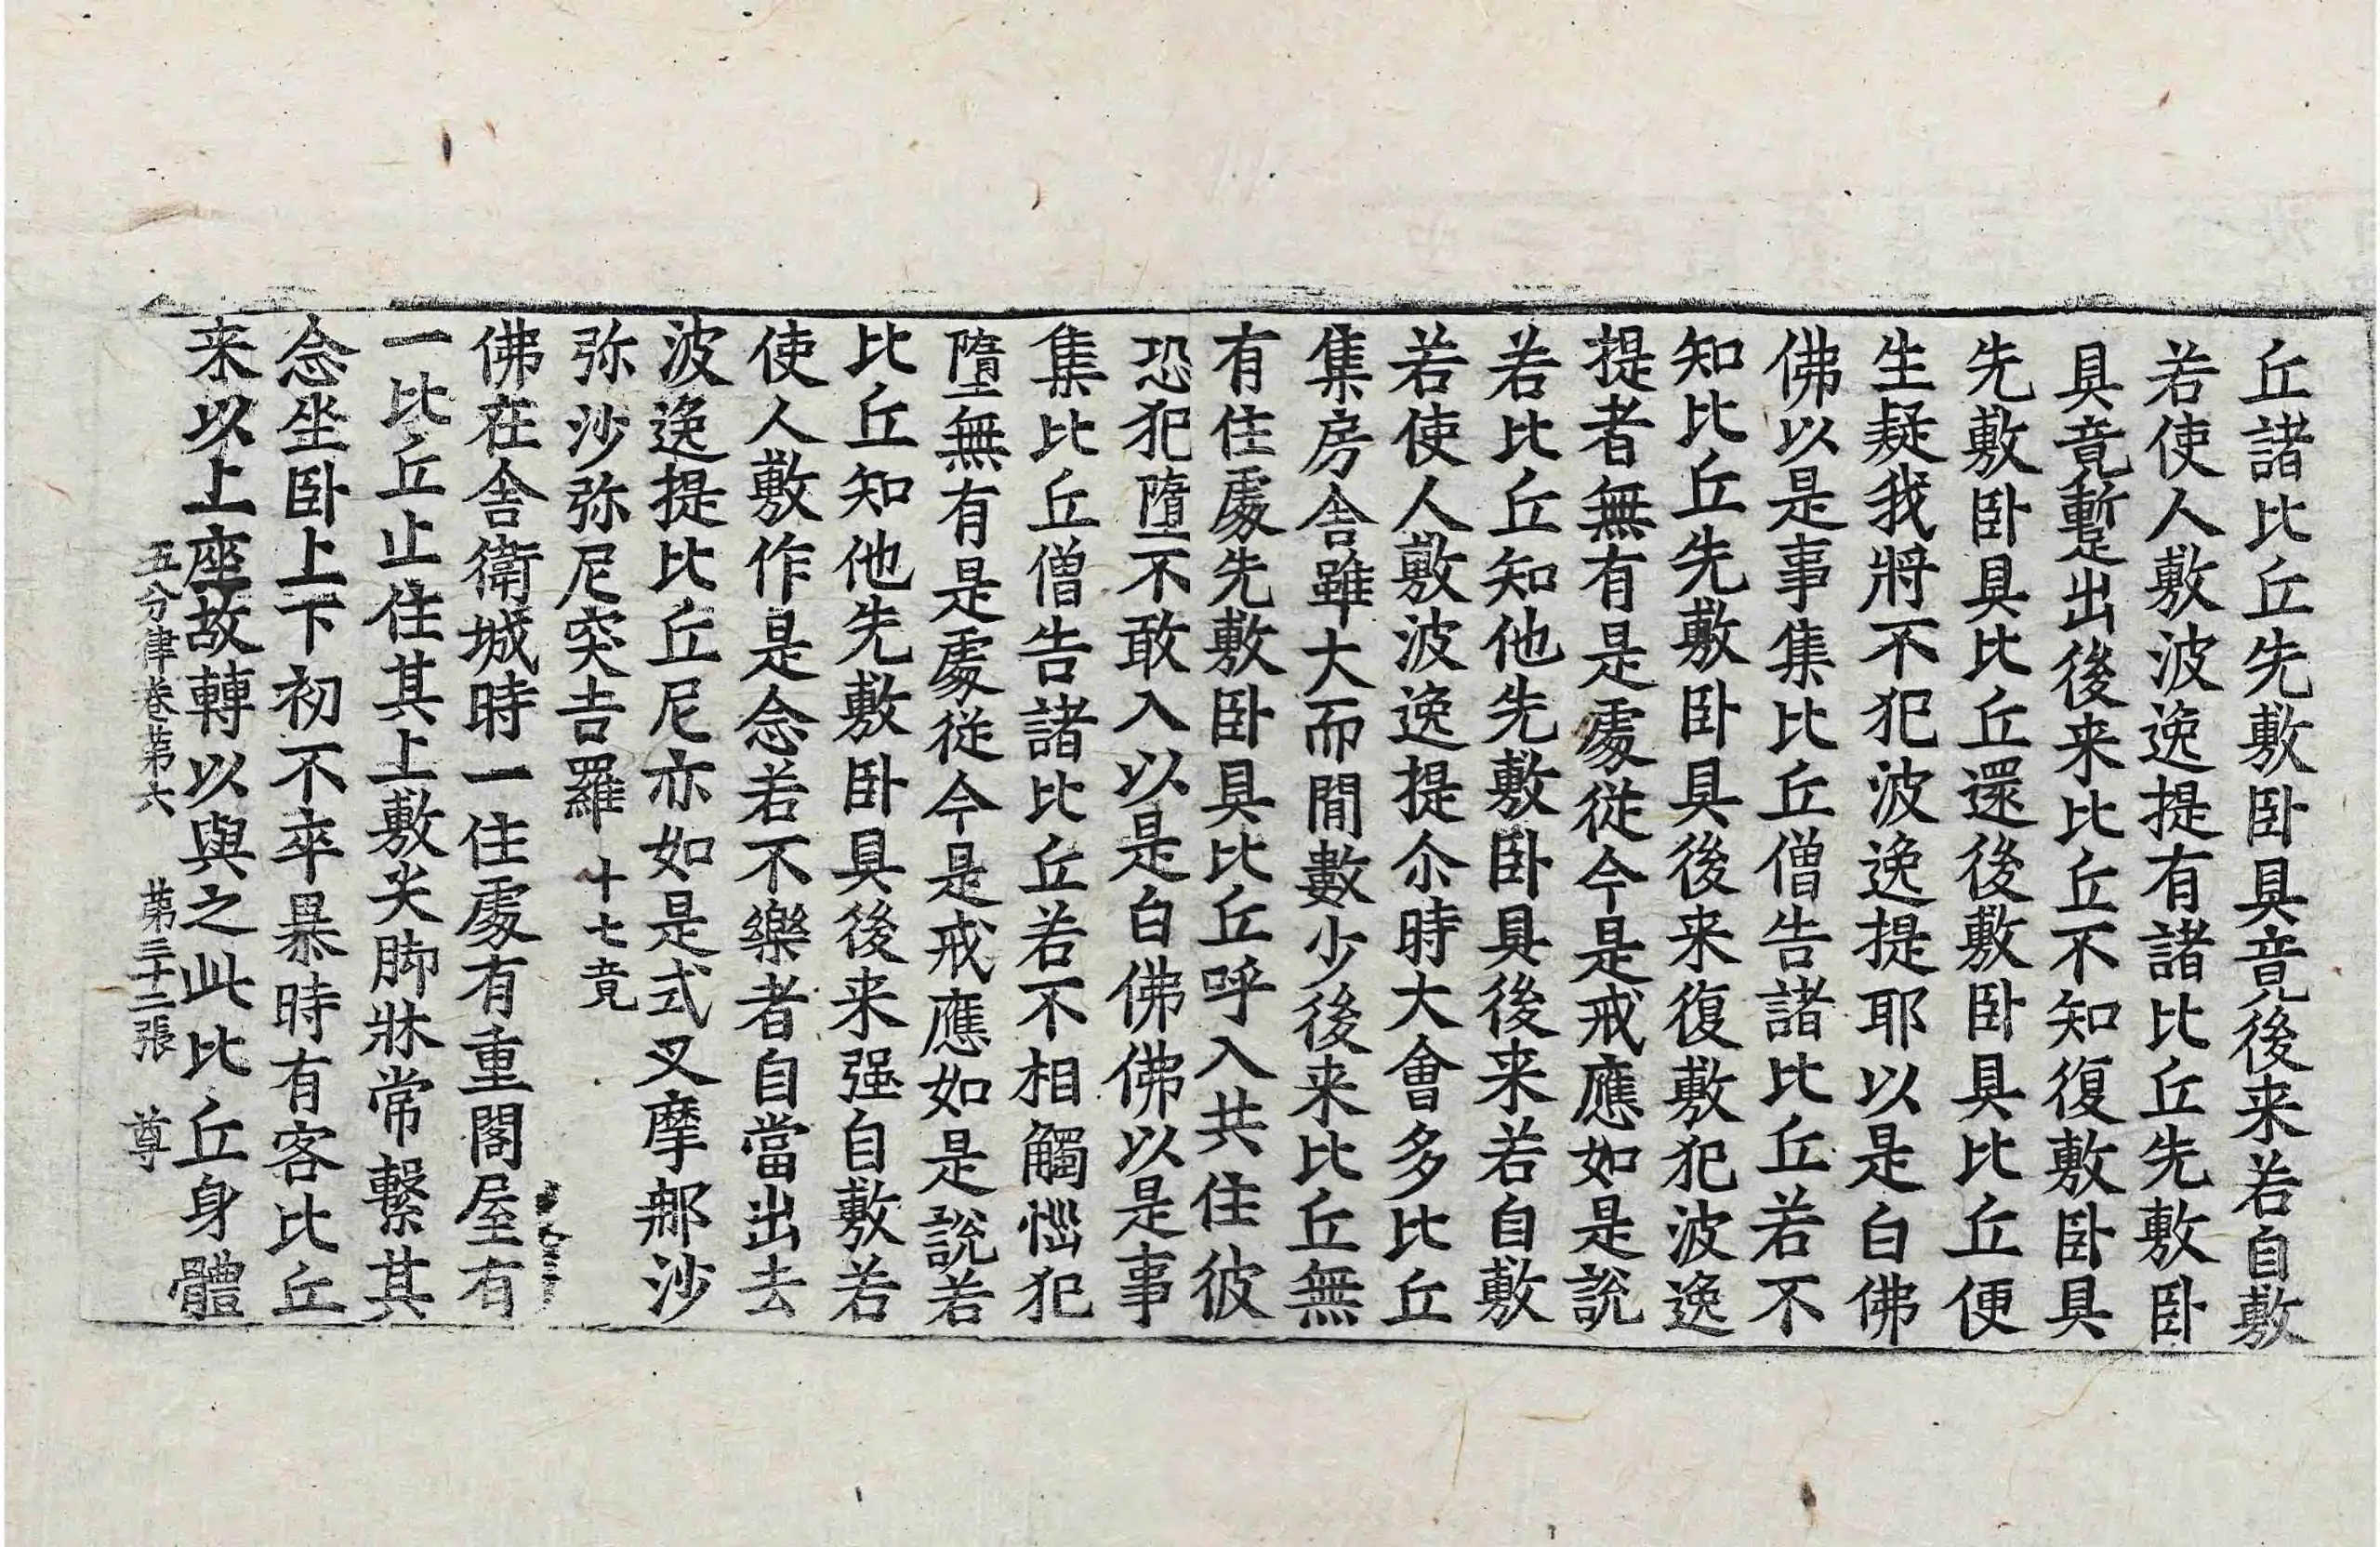 丘諸比丘先敷卧具竟後来若自敷
若使人敷波逸提有諸比丘先敷卧
具竟暫出後来比丘不知復敷卧具
先敷卧具比丘還後敷卧具比丘便
生疑我將不犯波逸提耶以是白佛
佛以是事集比丘僧告諸比丘若不
知比丘先敷卧具後来復敷犯波逸
提者無有是處従今是戒應如是說
若比丘知他先敷卧具後来若自敷
若使人敷波逸提尒時大會多比丘
集房舎雖大而閒數少後来比丘無
有住處先敷卧具比丘呼入共住彼
恐犯墮不敢入以是白佛佛以是事
集比丘僧告諸比丘若不相觸惱犯
墮無有是處従今是戒應如是說若
比丘知他先敷卧具後来强自敷若
使人敷作是念若不樂者自當出去
波逸提比丘尼亦如是式叉摩那沙
弥沙弥尼突吉羅 十七竟
佛在舎衛城時一住處有重閣屋有
一比丘止住其上敷尖脚牀常繫其
念坐卧上下初不卒暴時有客比丘
来以上座故轉以與之此比丘身體
五分律卷第六 第三十二張 尊